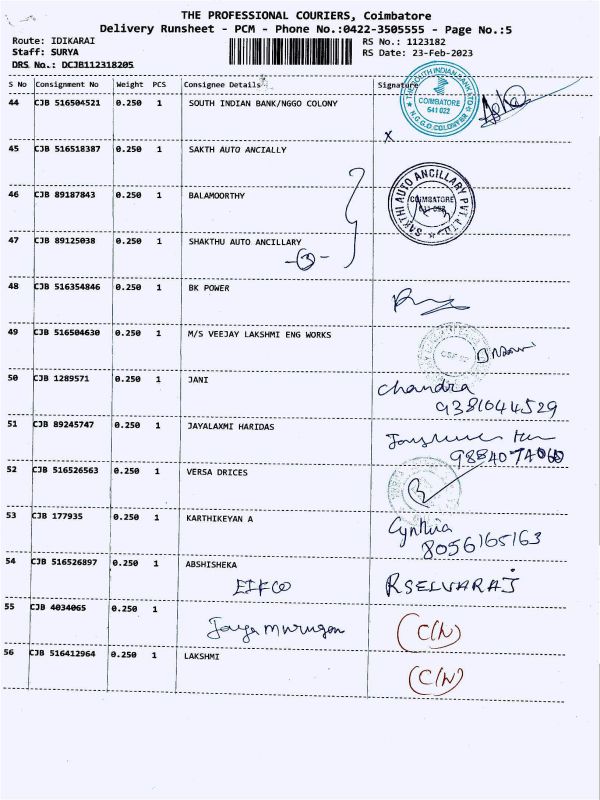 THE PROFESSIONAL COURIERS, Coimbatore
Delivery Runsheet - PCM - Phone No.:0422-3505555 - Page No.:5
Route: IDIKARAI RS No.: 1123182
Staff: SURYA RS Date: 23-Feb-2023
DRS No.: DCJB112318205
S No Consignment No Weight PCS Consignee Details Signature
44 CJB 516504521 0.250 1 SOUTH INDIAN BANK/NGGO COLONY
THE SOUTH INDIAN BANK LTD
COIMBATORE
641 022
N.G.G.O COLONY
X
45 CJB 516518387 0.250 1 SAKTH AUTO ANCIALLY
46 CJB 89187843 0.250 1 BALAMOORTHY
SAKTHI AUTO ANCILLARY PVT. LTD.
COIMBATORE
47 CJB 89125038 0.250 1 SHAKTHU AUTO ANCILLARY
-3-
48 CJB 516354846 0.250 1 BK POWER
49 CJB 516504630 0.250 1 M/S VEEJAY LAKSHMI ENG WORKS
50 CJB 1289571 0.250 1 JANI
Chandra
9381044529
51 CJB 89245747 0.250 1 JAYALAXMI HARIDAS
52 CJB 516526563 0.250 1 VERSA DRICES
53 CJB 177935 0.250 1 KARTHIKEYAN A
Cynthia
8056165163
54 CJB 516526897 0.250 1 ABSHISHEKA
EIFCO RSELVARAJ
55 CJB 4034065 0.250 1
Jaya Murugan (C/N)
56 CJB 516412964 0.250 1 LAKSHMI
(C/N)